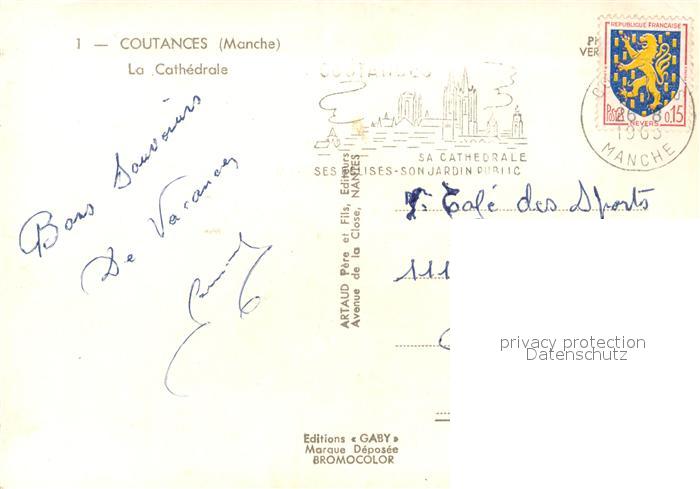 1 — COUTANCES (Manche)
La Cathédrale
Bons Souvenirs
De Vacances
COUTANCES
SA CATHEDRALE
SES EGLISES-SON JARDIN PUBLIC
REPUBLIQUE FRANÇAISE
POSTES 0,15
NEVERS
26-8
1963
MANCHE
ARTAUD Père et Fils, Editeurs
Avenue de la Close, NANTES
Café des Sports
111
privacy protection
Datenschutz
Editions « GABY »
Marque Déposée
BROMOCOLOR